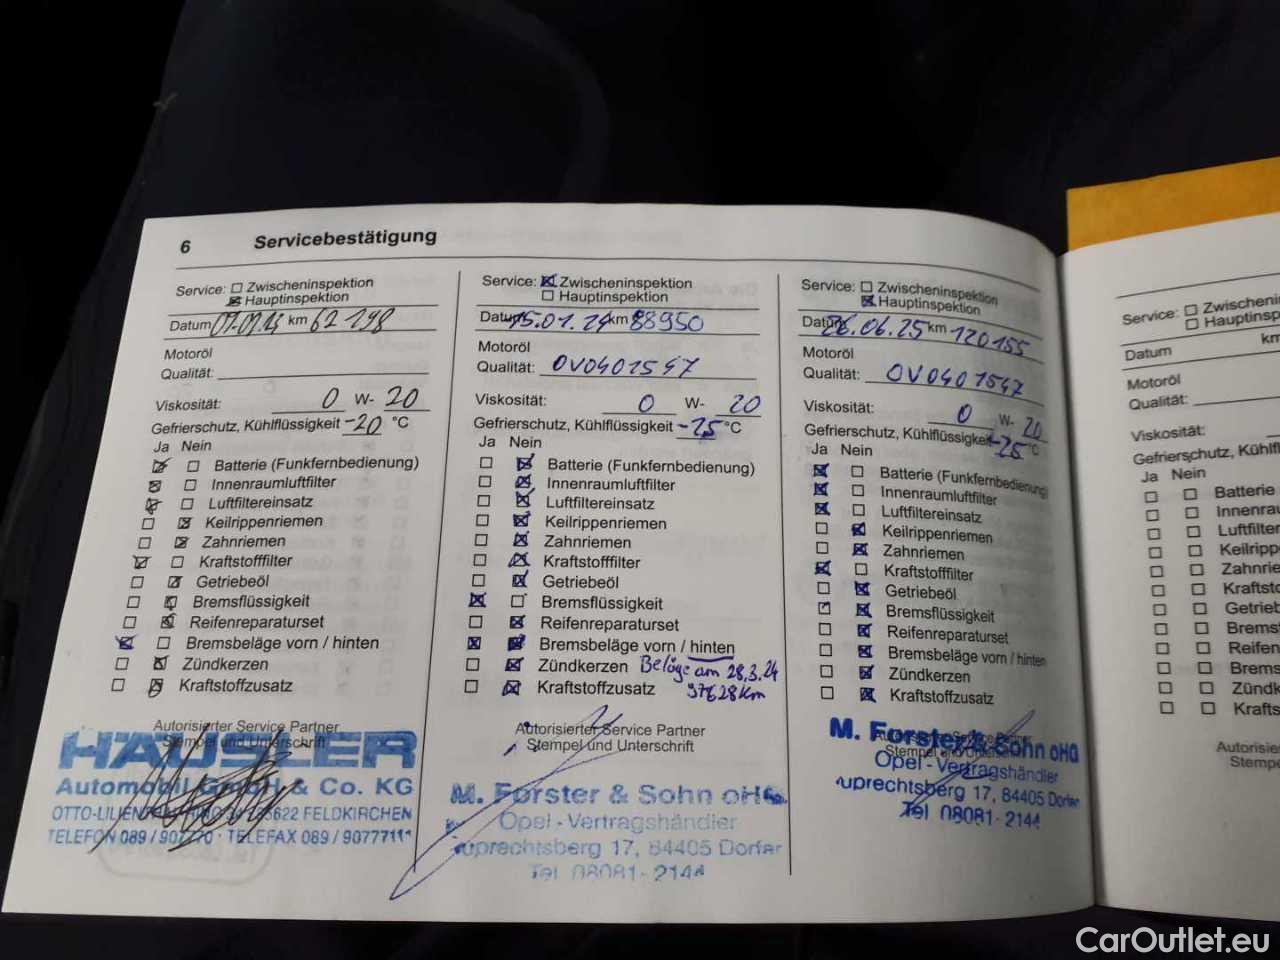 6 Servicebestätigung
Service: Zwischeninspektion
Hauptinspektion
Datum km 62 198
Motoröl
Qualität:
Viskosität: 0 W- 20
Gefrierschutz, Kühlflüssigkeit -20 °C
Ja Nein
Batterie (Funkfernbedienung)
Innenraumluftfilter
Luftfiltereinsatz
Keilrippenriemen
Zahnriemen
Kraftstofffilter
Getriebeöl
Bremsflüssigkeit
Reifenreparaturset
Bremsbeläge vorn / hinten
Zündkerzen
Kraftstoffzusatz
Autorisierter Service Partner
Stempel und Unterschrift
HÄUSLER
Automobil GmbH & Co. KG
85622 FELDKIRCHEN
TELEFON 089 / TELEFAX 089 / 9077711
Service: Zwischeninspektion
Hauptinspektion
Datum 15.01.24 km 88950
Motoröl
Qualität: OV0401547
Viskosität: 0 W- 20
Gefrierschutz, Kühlflüssigkeit -25 °C
Ja Nein
Batterie (Funkfernbedienung)
Innenraumluftfilter
Luftfiltereinsatz
Keilrippenriemen
Zahnriemen
Kraftstofffilter
Getriebeöl
Bremsflüssigkeit
Reifenreparaturset
Bremsbeläge vorn / hinten
Zündkerzen Beläge am 28.3.24
Kraftstoffzusatz 97628km
Autorisierter Service Partner
Stempel und Unterschrift
M. Forster & Sohn oHG
Opel - Vertragshändler
Ruprechtsberg 17, 84405 Dorfen
Tel. 08081 - 2144
Service: Zwischeninspektion
Hauptinspektion
Datum 26.06.25 km 120155
Motoröl
Qualität: OV0401547
Viskosität: 0 W- 20
Gefrierschutz, Kühlflüssigkeit -25 °C
Ja Nein
Batterie (Funkfernbedienung)
Innenraumluftfilter
Luftfiltereinsatz
Keilrippenriemen
Zahnriemen
Kraftstofffilter
Getriebeöl
Bremsflüssigkeit
Reifenreparaturset
Bremsbeläge vorn / hinten
Zündkerzen
Kraftstoffzusatz
Autorisierter Service Partner
Stempel und Unterschrift
M. Forster & Sohn oHG
Opel - Vertragshändler
Ruprechtsberg 17, 84405 Dorfen
Tel 08081 - 2144
Service: Zwischeni
Hauptinsp
Datum km
Motoröl
Qualität:
Viskosität:
Gefrierschutz, Kühlfl
Ja Nein
Batterie
Innenrau
Luftfilter
Keilripp
Zahnrie
Kraftsto
Getrieb
Brems
Reifen
Brems
Zündk
Krafts
Autorisie
Stemp
CarOutlet.eu